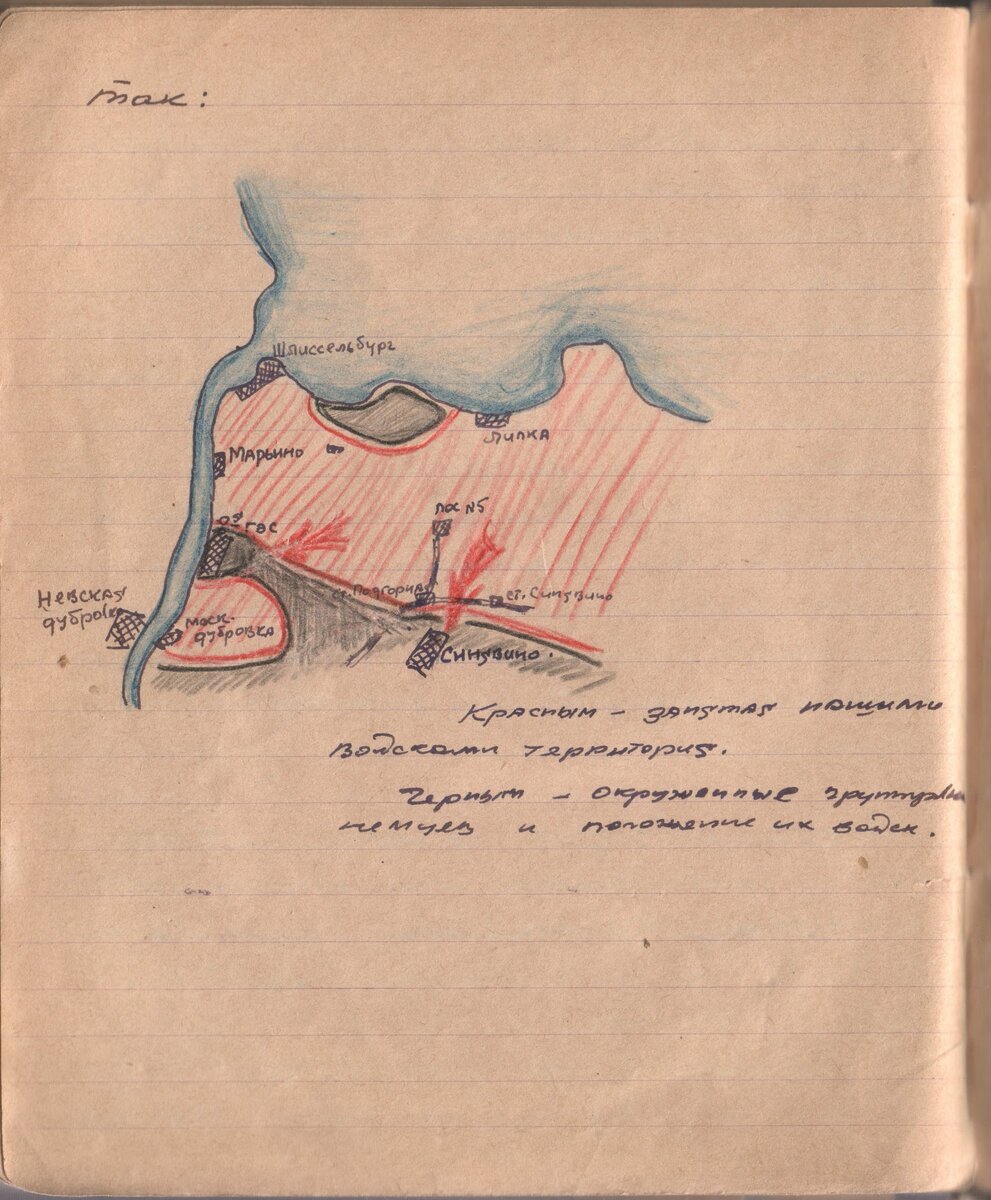 так:
Шлиссельбург
Липка
Марьино
пос №5
8я ГЭС
ст. Подгорная
ст. Синявино
Невская
дубровка
Моск.
дубровка
Синявино.
Красным - занятая нашими
войсками территория.
Черным - окруженные группировки
немцев и положение их войск.